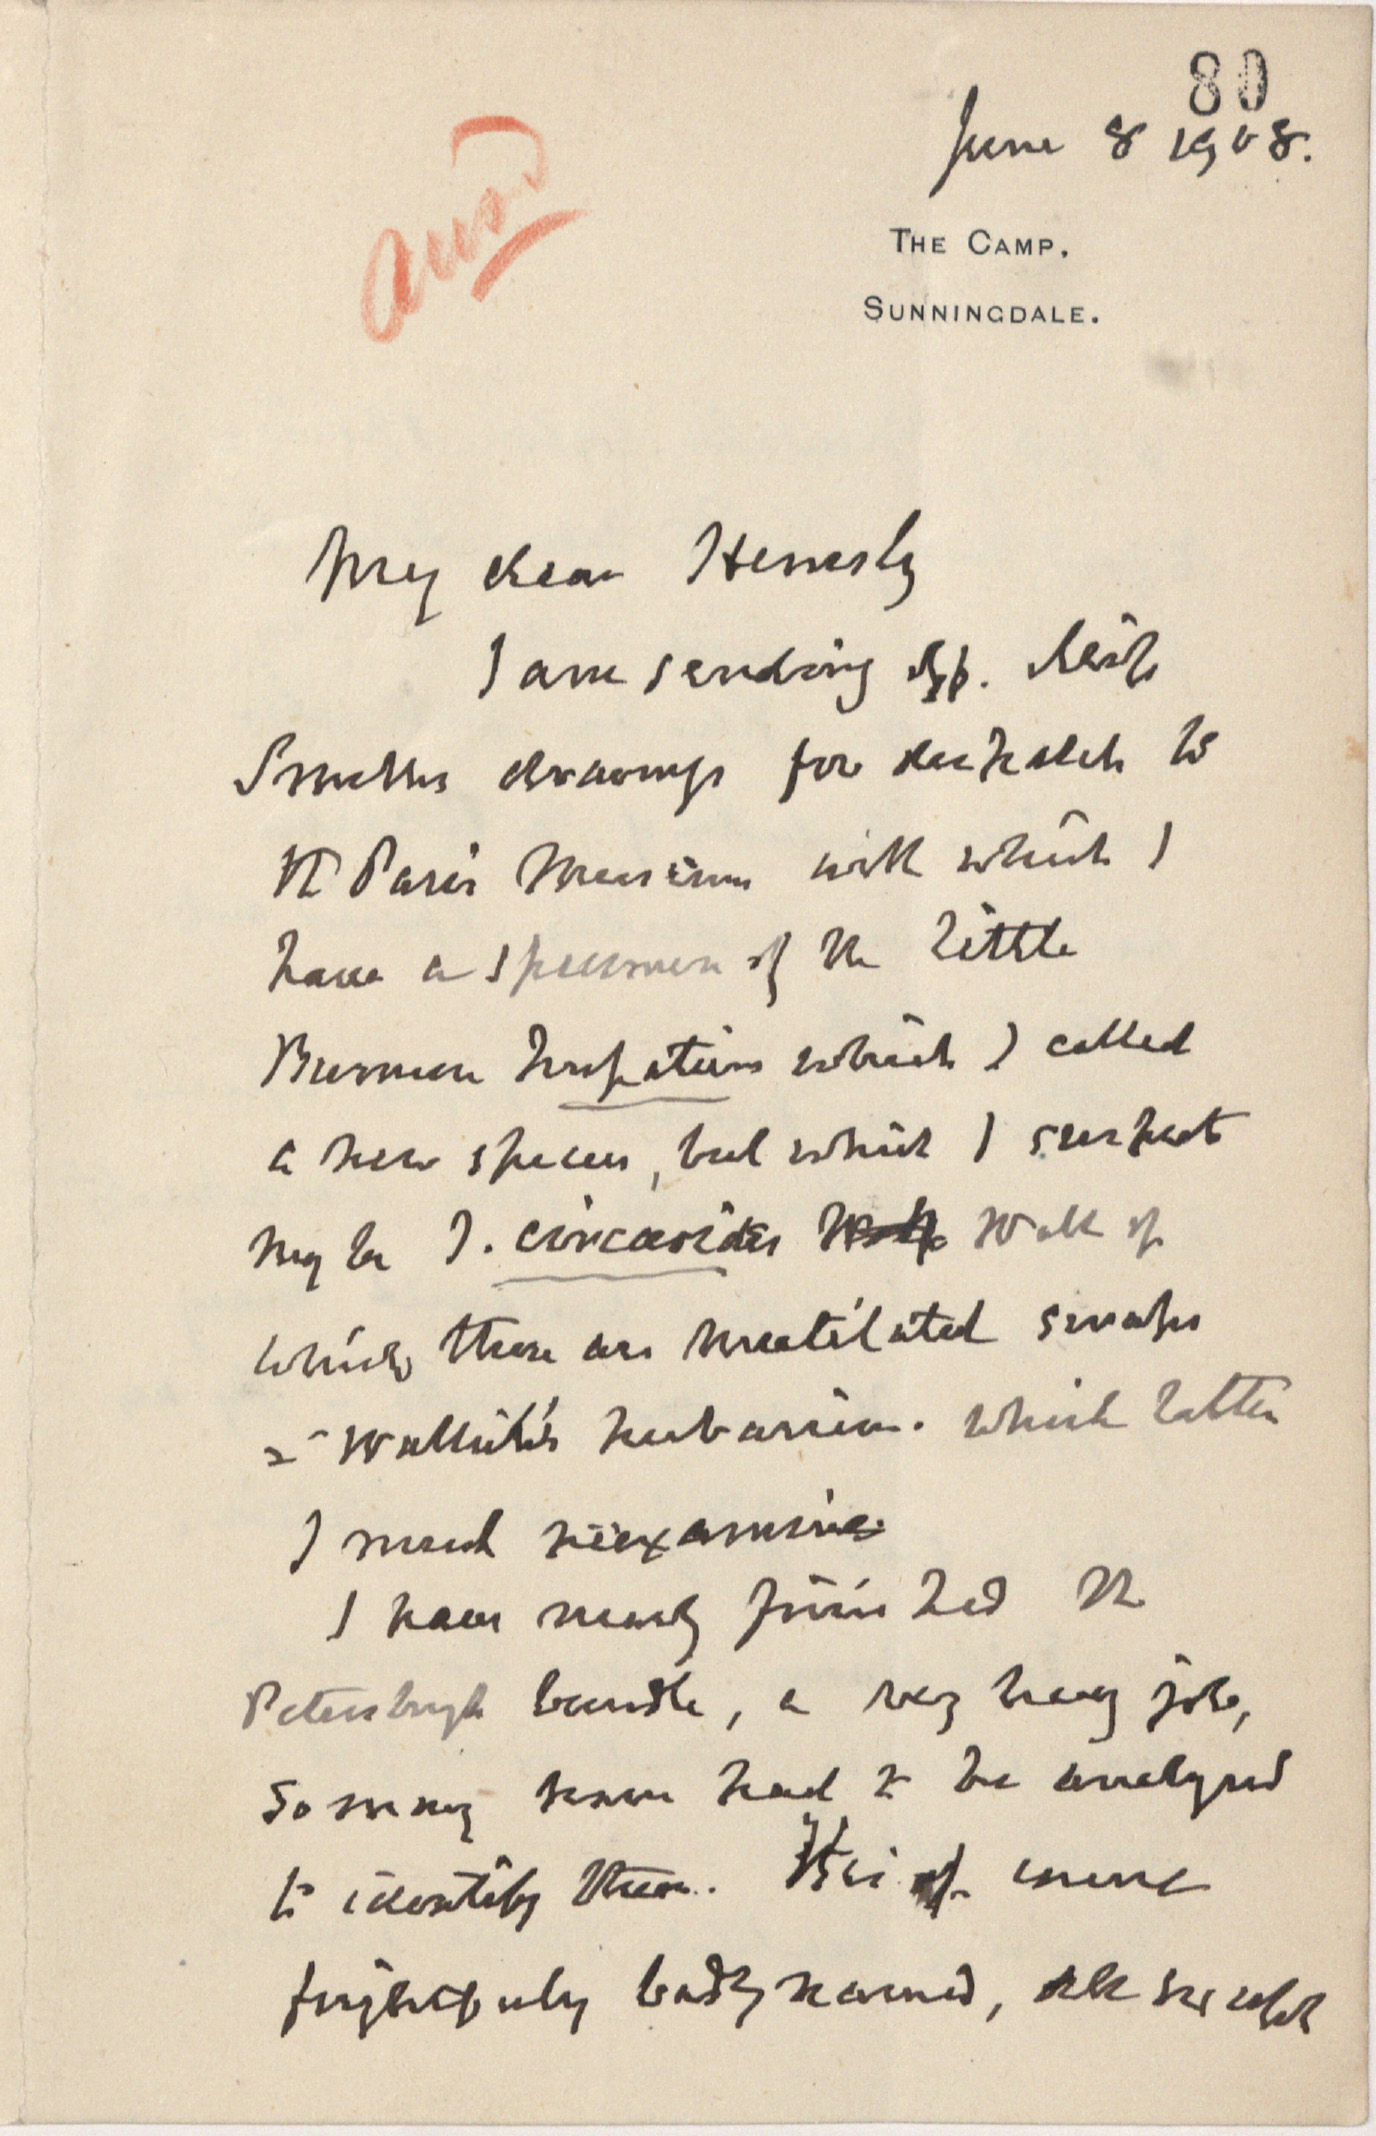 80
June 8 1908.
ansd
THE CAMP.
SUNNINGDALE.
My dear Hemsly
I am sending off. Miss
Smiths drawings for despatch to
the Paris Museum with which I
have a specimen of the little
Burman Impatiens which I called
a new species, but which I suspect
may be I. circaeoides Wall of
which there are mutilated scraps
in Wallich's herbarium. which latter
I must reexamine
I have nearly finished the
Petersburgh bundle, a very heavy job,
so many have had to be analysed
to identify them. were
frightfully badly named, all except